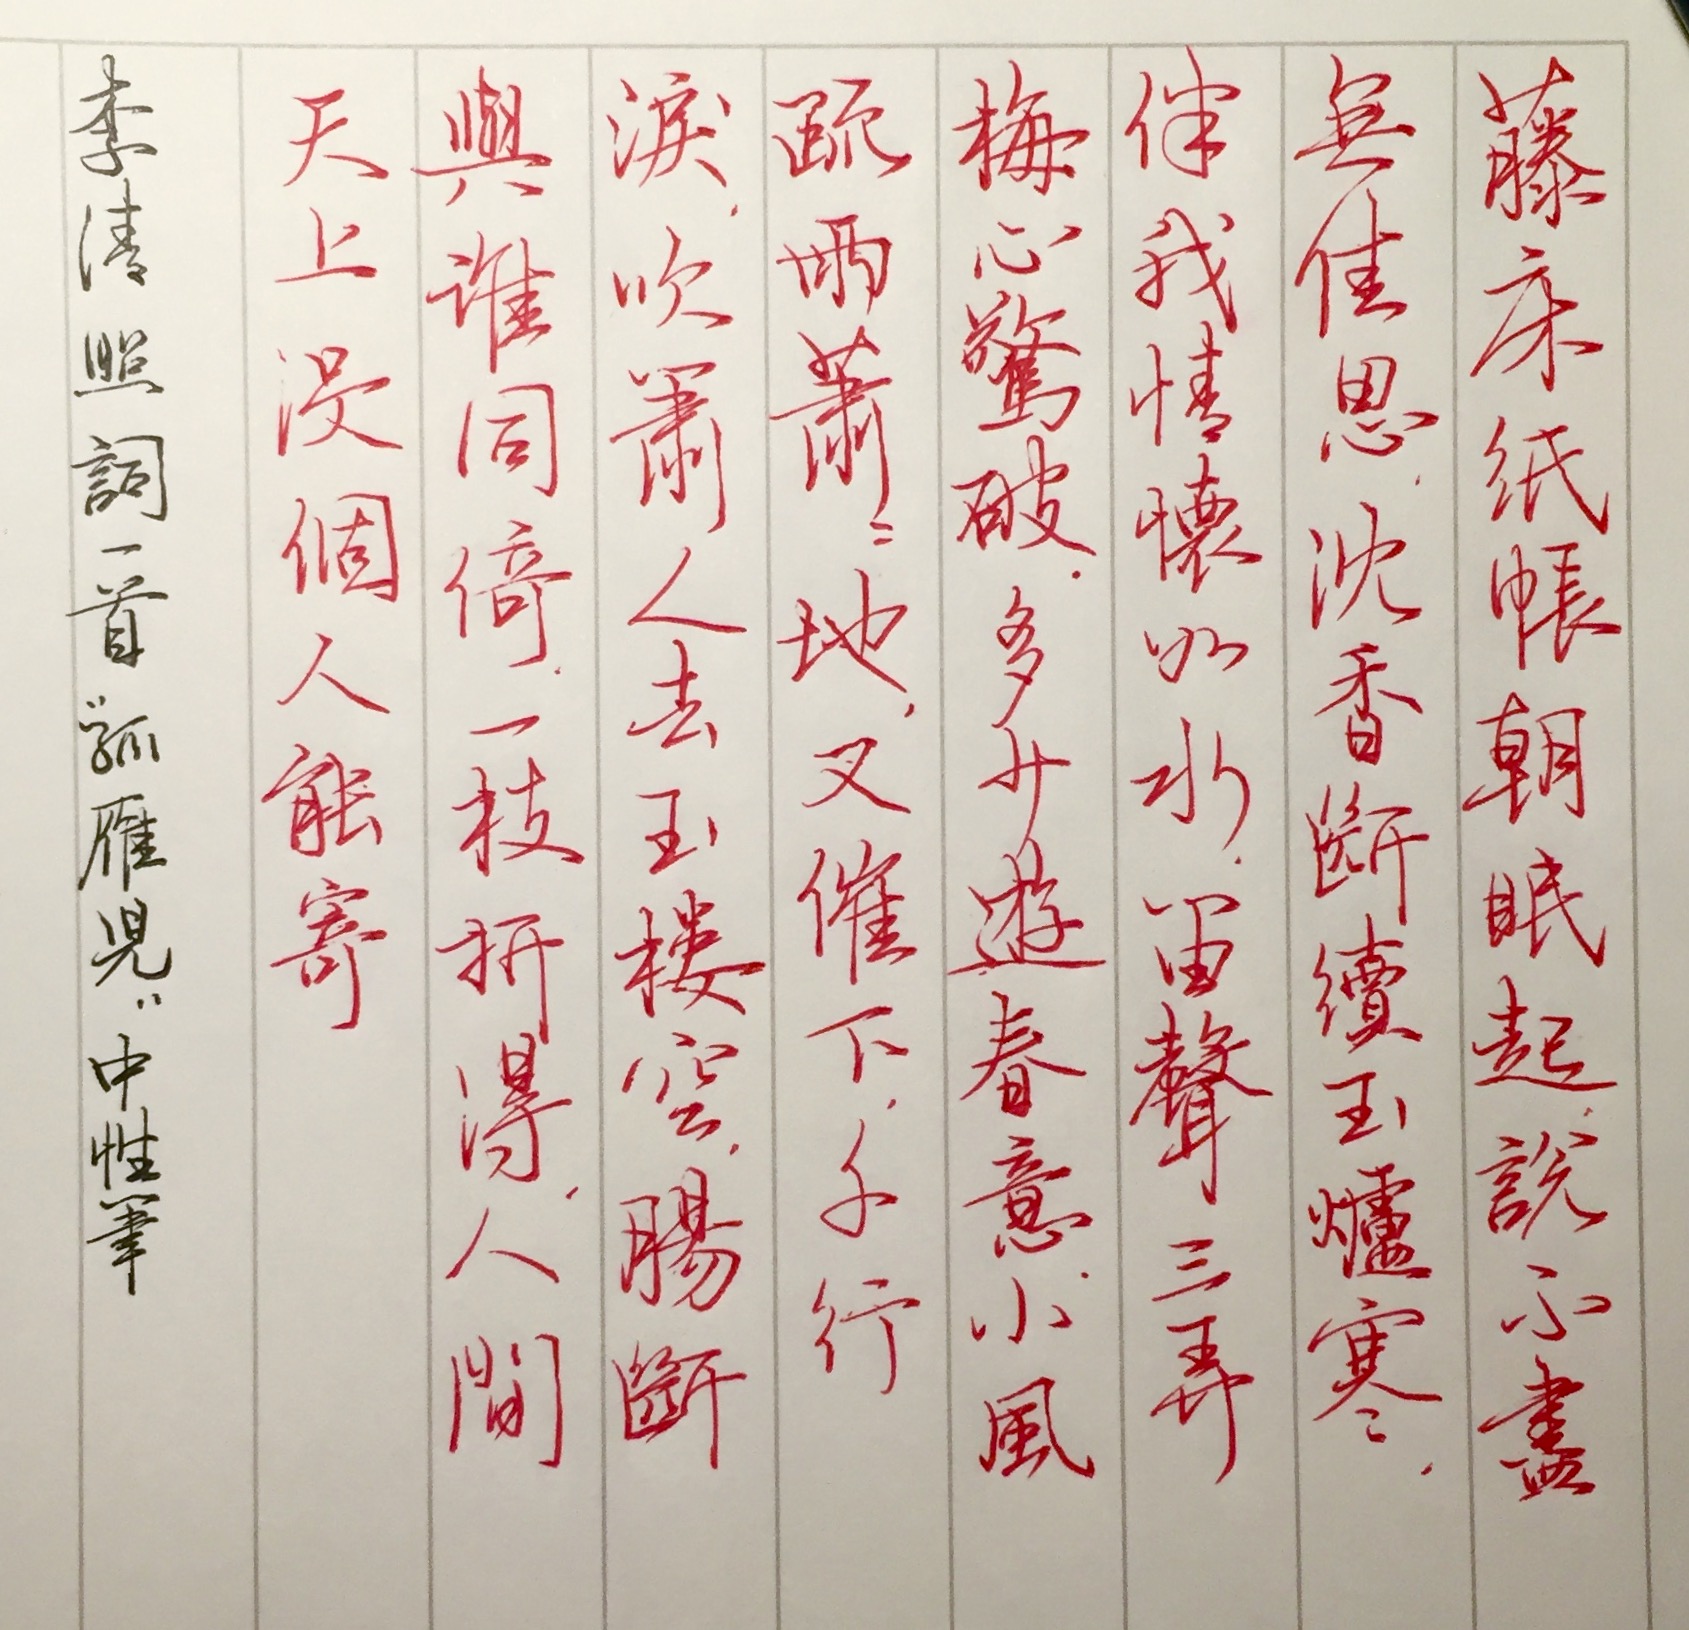 藤床纸帳朝眠起.說不盡
無佳思.沈香斷續玉爐寒.
伴我情懷如水.笛聲三弄
梅心驚破.多少遊春意.小風
疏雨蕭蕭地,又催下.千行
淚,吹簫人去玉楼空,腸斷
與誰同倚.一枝折得,人間
天上没個人能寄
李清照詞一首"孤雁児"中性筆